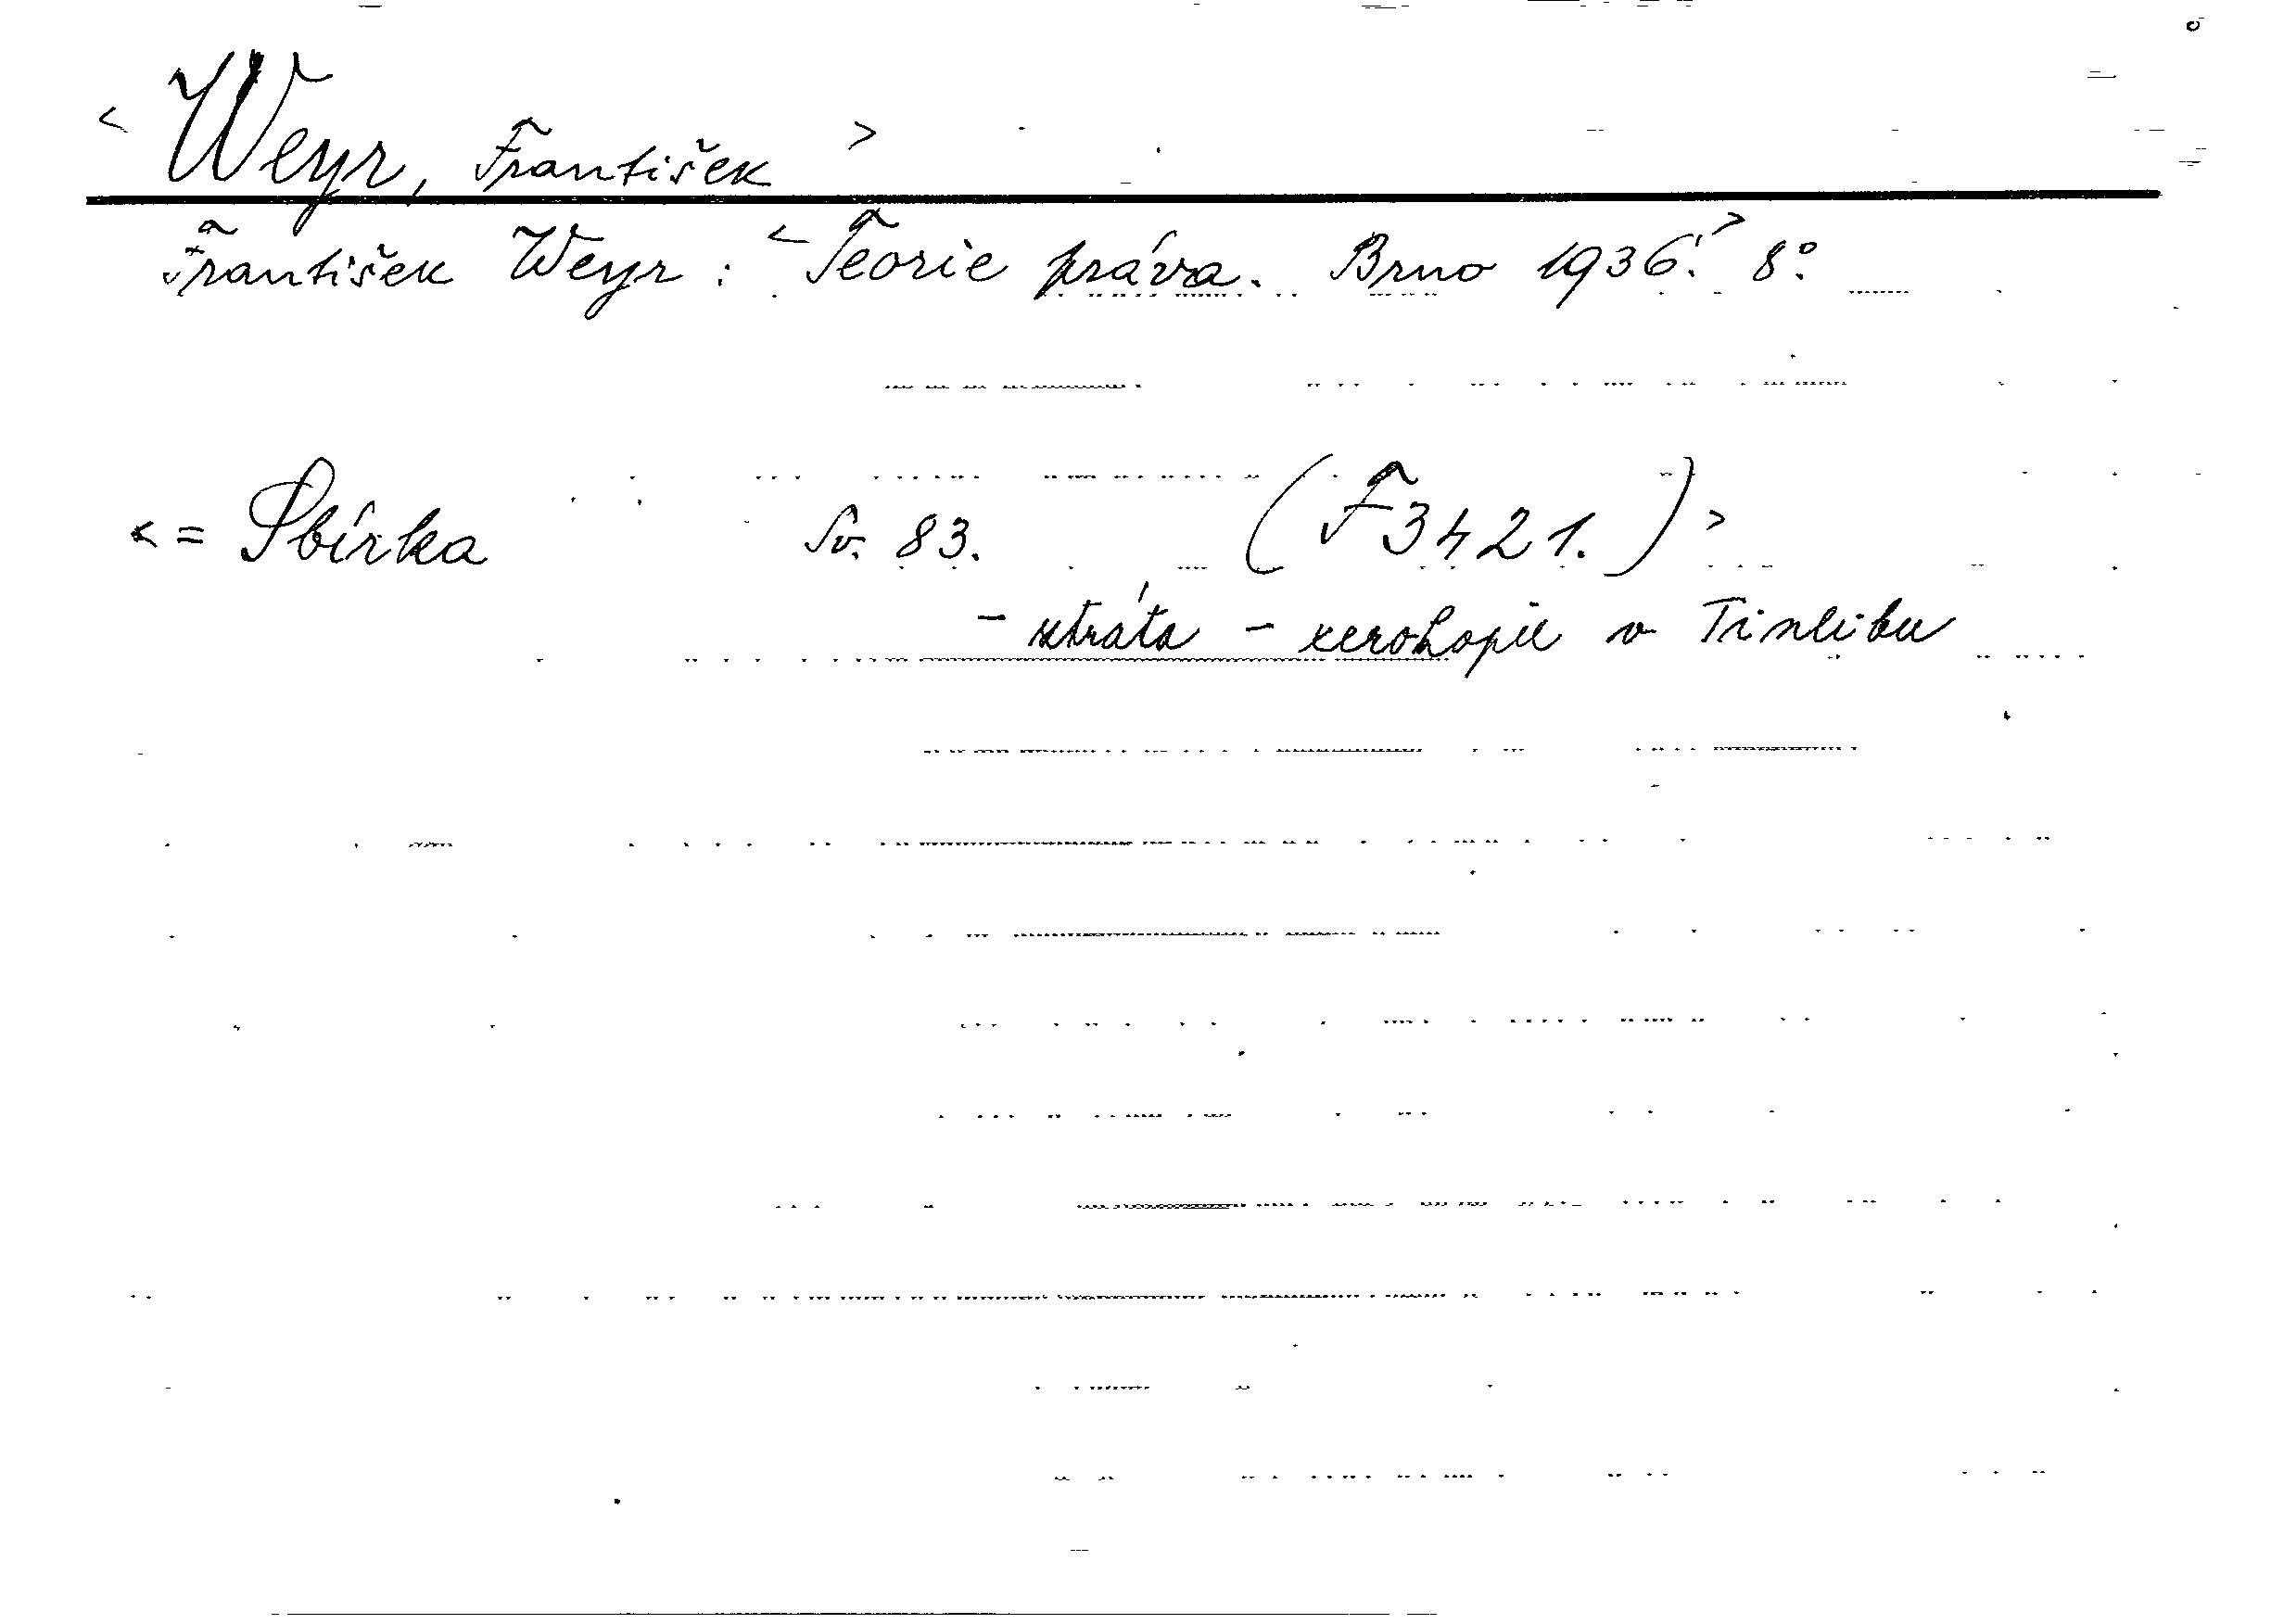 < Weyr, František >
František Weyr : < Teorie práva. Brno 1936. > 8°.
< = Sbírka Sv. 83. (F3421.) >
- ztráta - xerokopie v Tinlibu